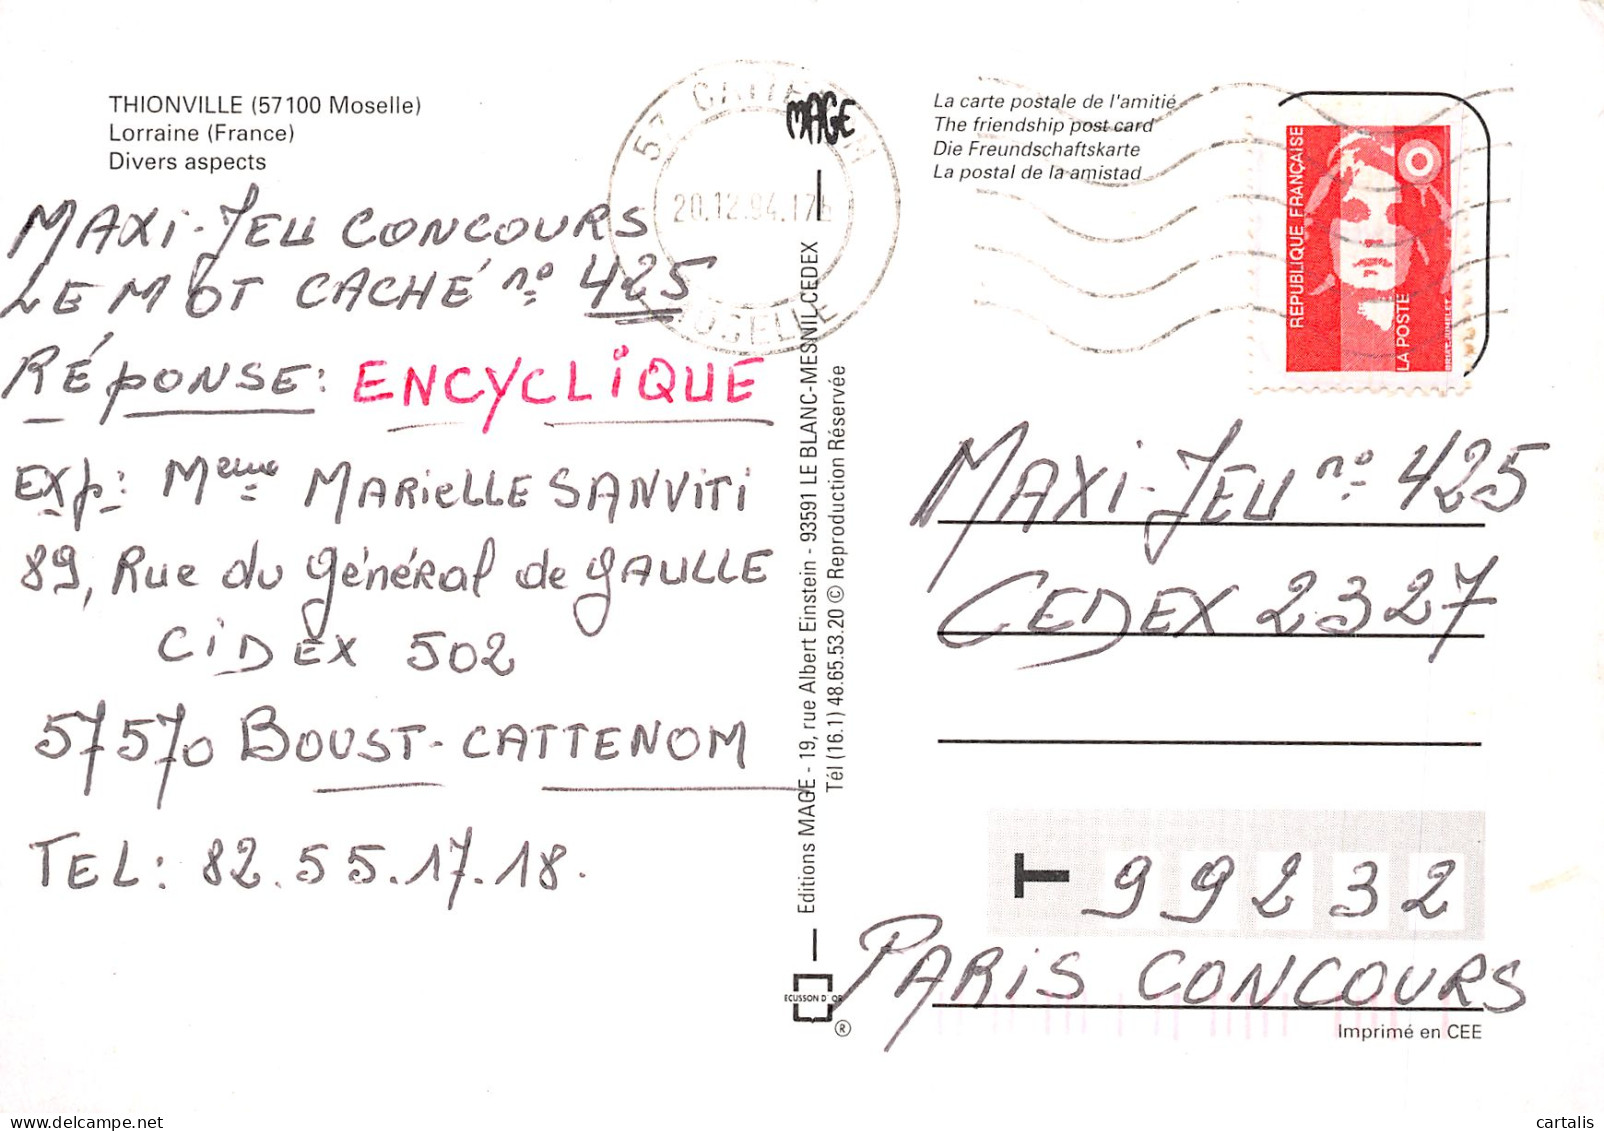 THIONVILLE (57100 Moselle)
Lorraine (France)
Divers aspects
MAXI-JEU CONCOURS
LE MOT CACHÉ nº 425
RÉPONSE: ENCYCLIQUE
EXp: Mme MARiELLE SANViTi
89, Rue du général de GAULLE
CiDEX 502
57570 BOUST-CATTENOM
TEL: 82.55.17.18.
57 CATTENOM
20.12.94.17h
MOSELLE
MAGE
Editions MAGE - 19, rue Albert Einstein - 93591 LE BLANC-MESNIL CEDEX
Tél (16.1) 48.65.53.20 © Reproduction Réservée
ECUSSON D'OR
®
La carte postale de l'amitié
The friendship post card
Die Freundschaftskarte
La postal de la amistad
REPUBLIQUE FRANÇAISE
LA POSTE
MAXi-JEU nº 425
CEDEX 2327
T 99232
PARiS CONCOURS
Imprimé en CEE
cartalis